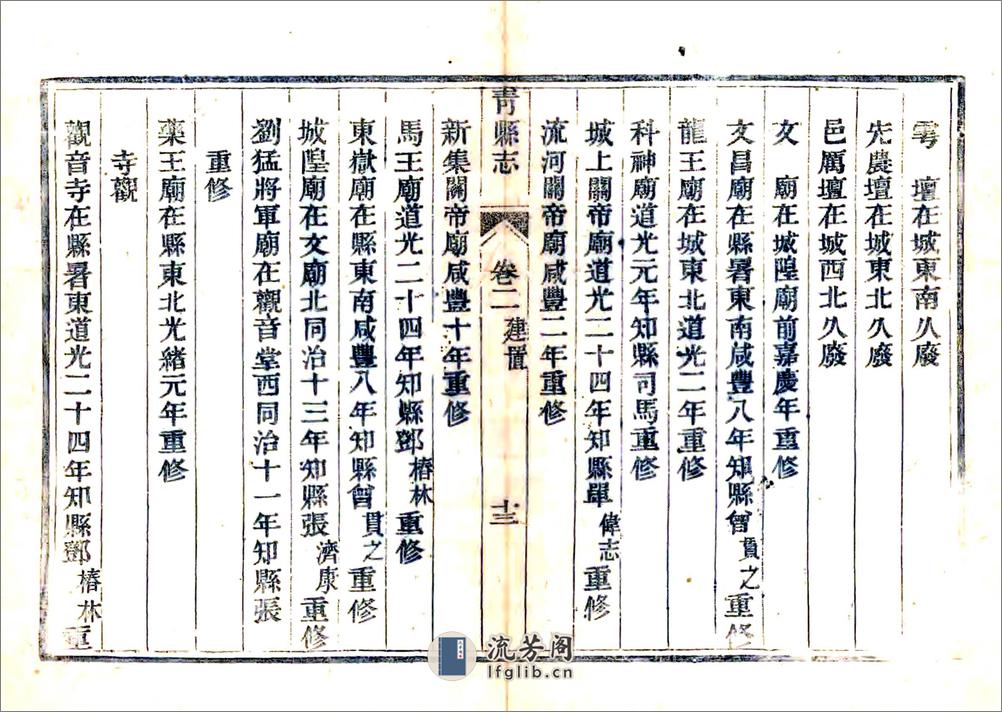 雩　壇在城東南久廢
先農壇在城東北久廢
邑厲壇在城西北久廢
文　廟在城隍廟前嘉慶年重修
文昌廟在縣署東南咸豐八年知縣曾貫之重修
龍王廟在城東北道光二年重修
科神廟道光元年知縣司馬重修
城上關帝廟道光二十四年知縣單偉志重修
流河關帝廟咸豐二年重修
青縣志　卷二　建置　十三
新集關帝廟咸豐十年重修
馬王廟道光二十四年知縣鄧椿林重修
東嶽廟在縣東南咸豐八年知縣曾貫之重修
城隍廟在文廟北同治十三年知縣張濟康重修
劉猛將軍廟在觀音堂西同治十一年知縣張
重修
藥王廟在縣東北光緒元年重修
寺觀
觀音寺在縣署東道光二十四年知縣鄧椿林重
流芳阁
lfglib.cn